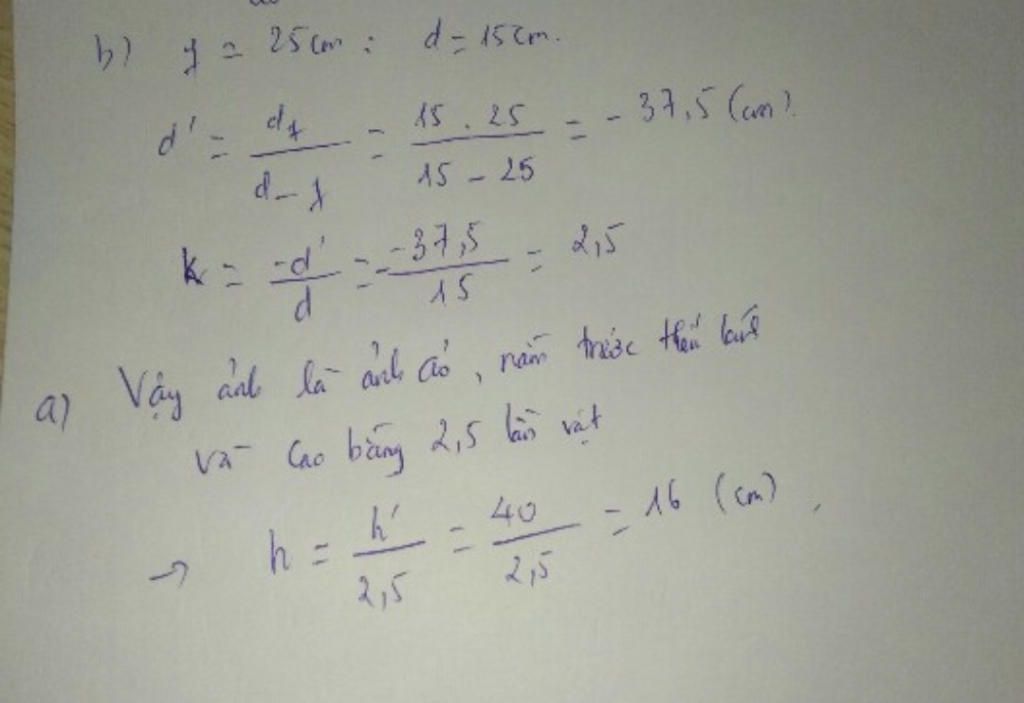 b) f = 25cm ; d = 15cm.
d' = df / d - f = 15 . 25 / 15 - 25 = - 37,5 (cm).
k = -d' / d = - -37,5 / 15 = 2,5
a) Vậy ảnh là ảnh ảo, nằm trước thấu kính
và cao bằng 2,5 lần vật
→ h = h' / 2,5 = 40 / 2,5 = 16 (cm).